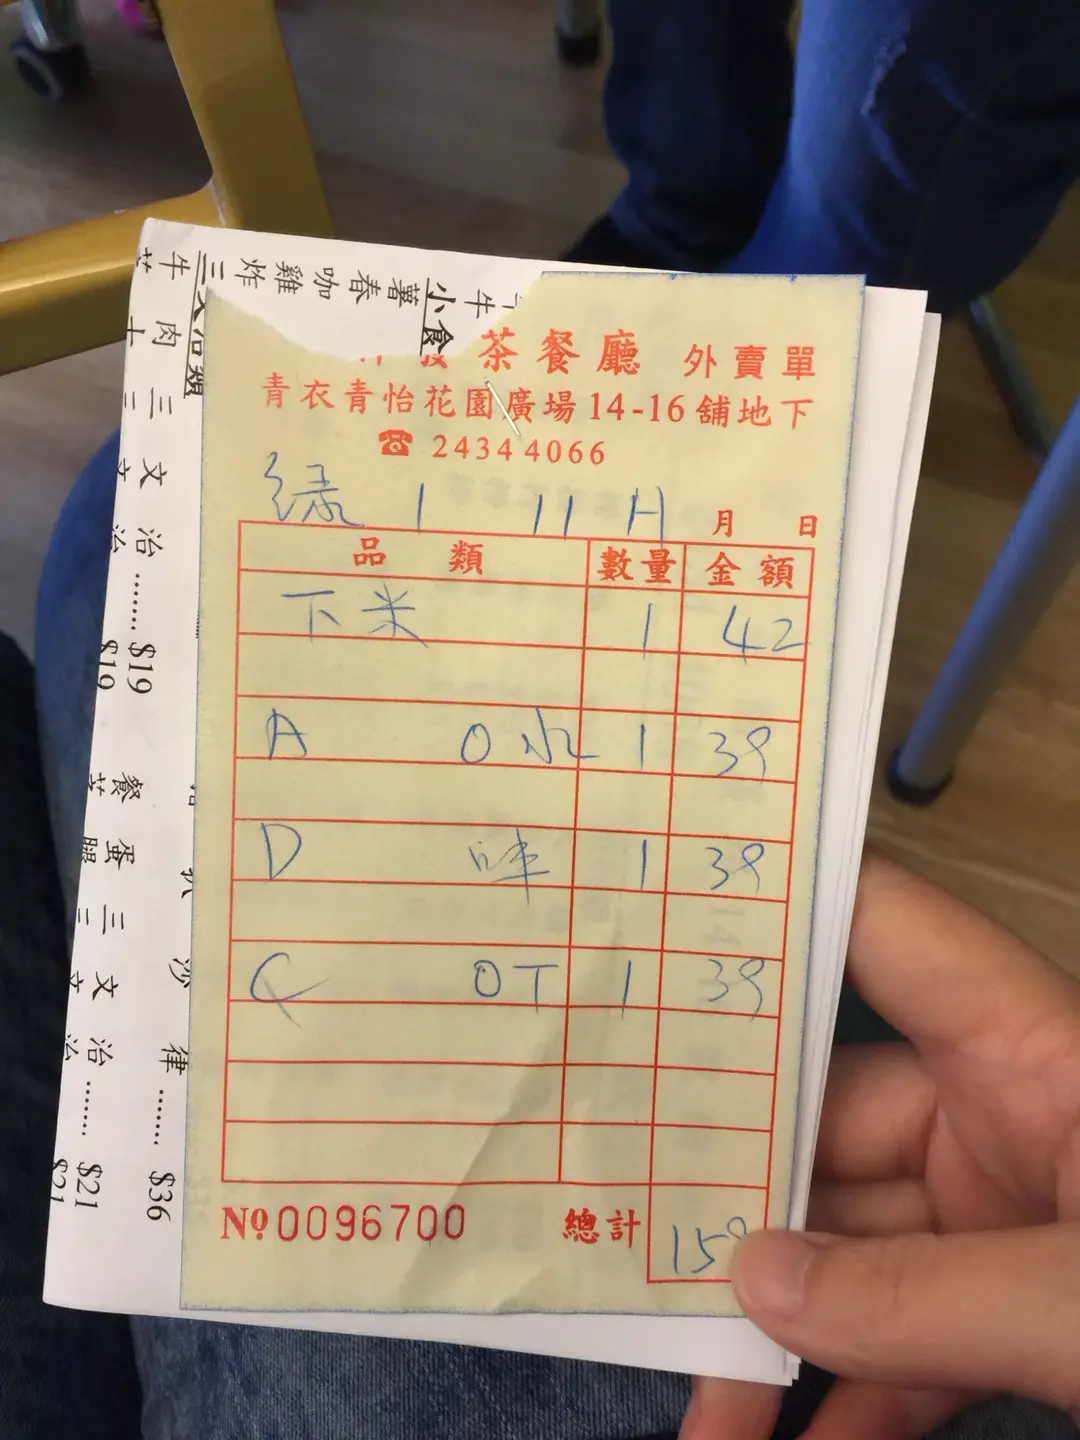 茶餐廳 外賣單
青衣青怡花園廣場14-16舖地下
☎ 24344066
绿 1 11 H 月 日
品類 數量 金額
下米 1 42
A 0水 1 39
D 咩 1 39
C OT 1 39
№0096700 總計 159
小食
薯
春
咖
雞
炸
牛肉三文治……$19
三文治……$19
餐蛋三文治……$21
腿三文治……$21
沙律……$36